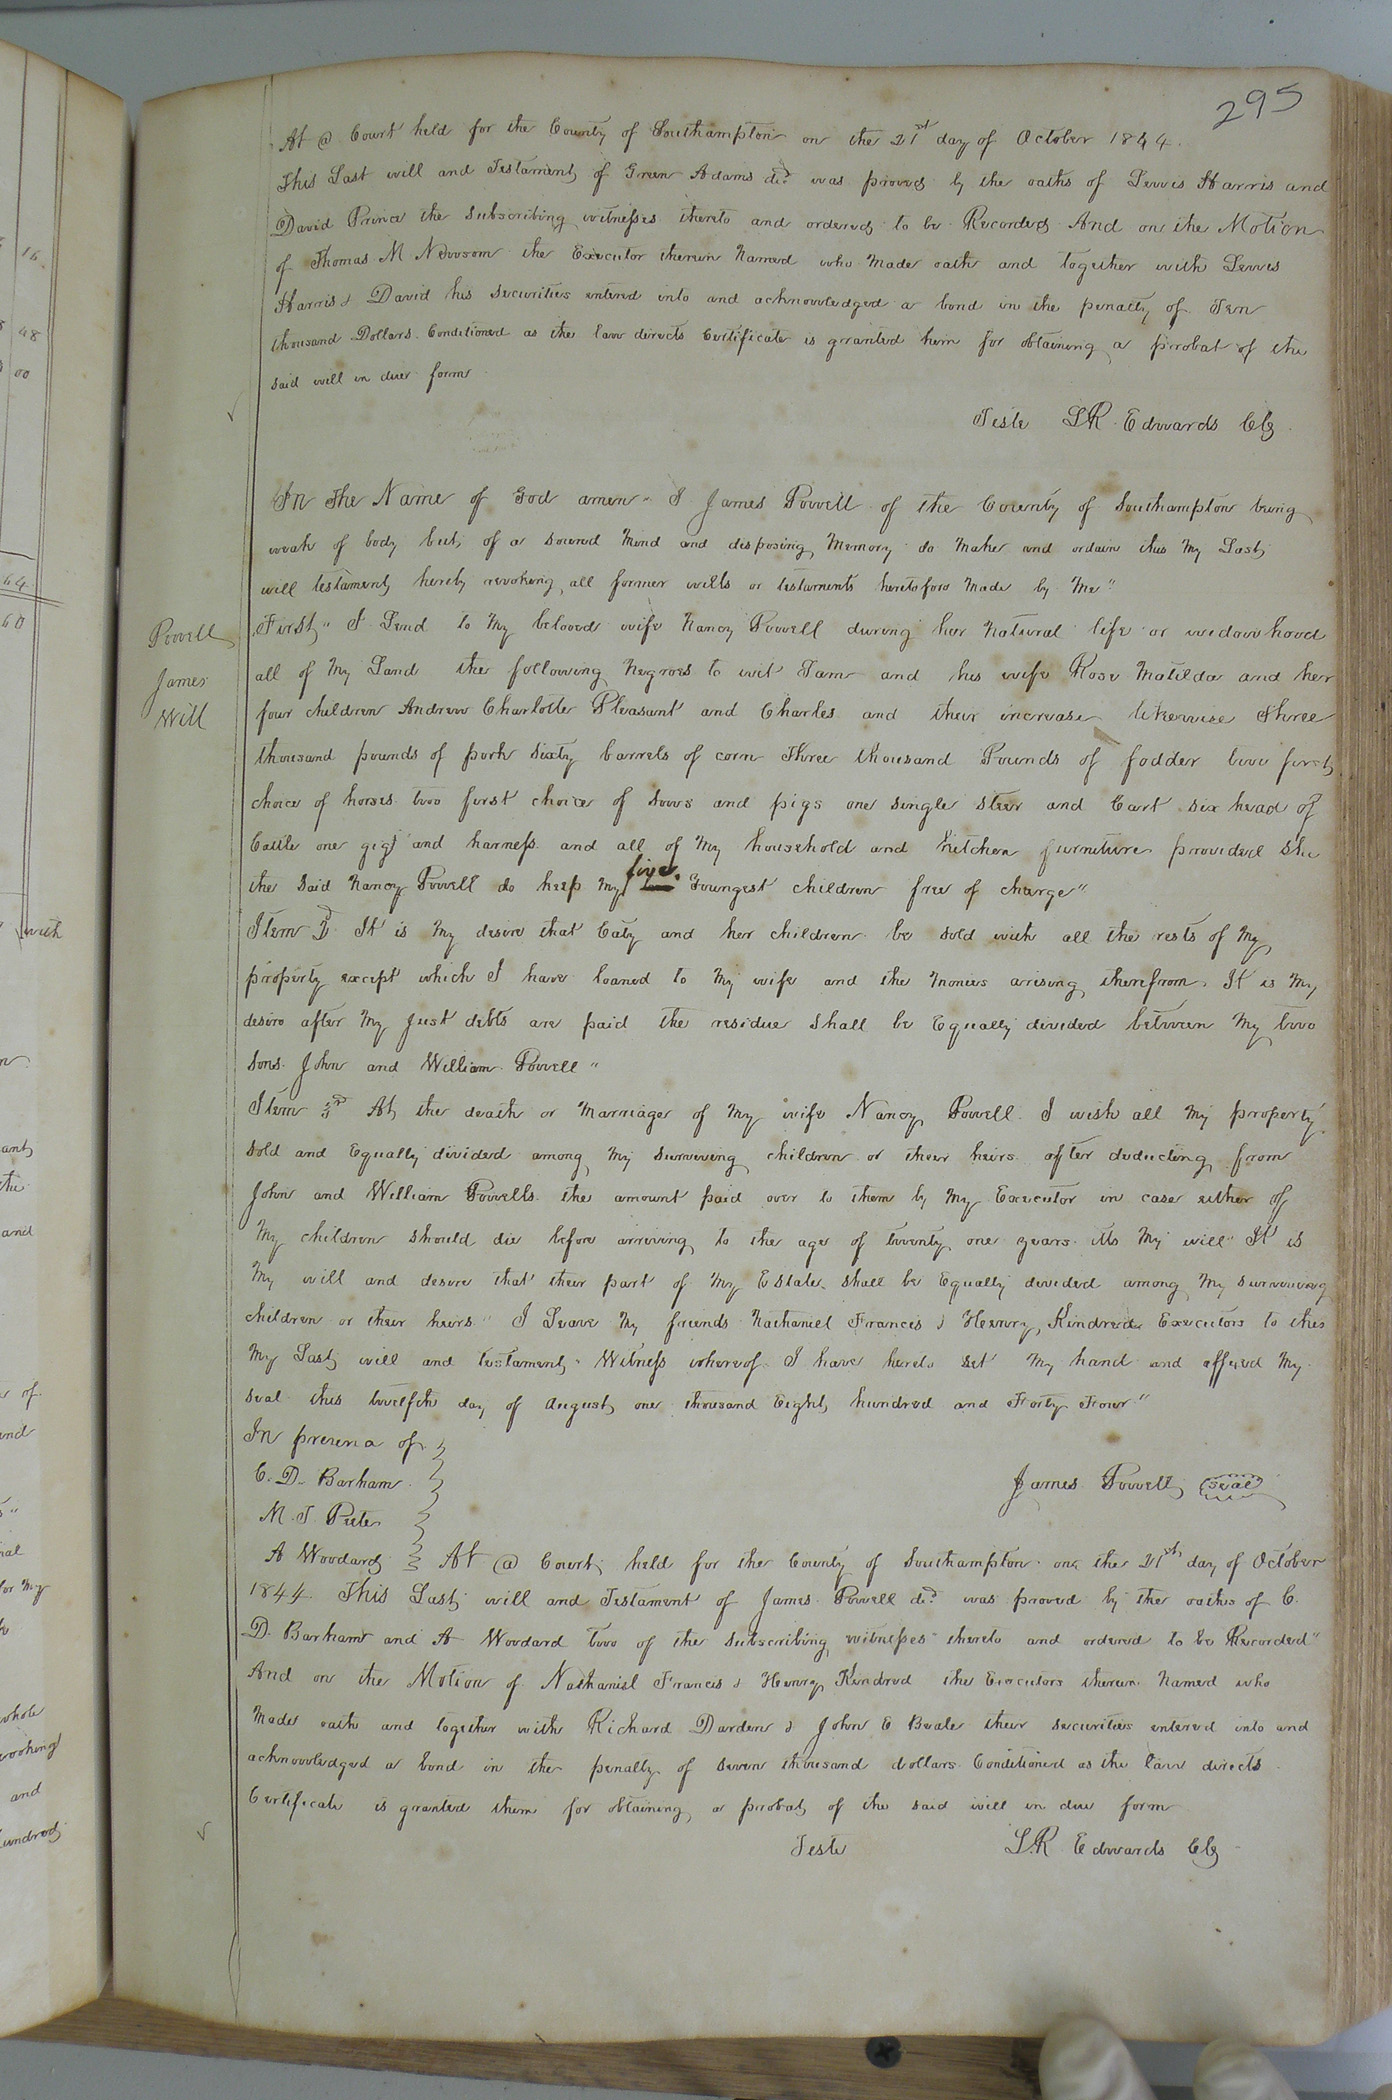 295
At @ Court held for the County of Southampton on the 21st day of October 1844.
This Last will and Testament of Green Adams decd was proved by the oaths of Lewis Harris and
David Prince the subscribing witnesses thereto and ordered to be Recorded And on the Motion
of Thomas M Newsom the Executor therein Named who Made oath and together with Lewis
Harris & David his securities entered into and acknowledged a bond in the penalty of Ten
thousand Dollars Conditioned as the law directs Certificate is granted him for obtaining a probat of the
said will in due form
Teste L R Edwards Clk
Powell
James
Will
In The Name of God amen" I James Powell of the County of Southampton being
weak of body but of a sound Mind and disposing Memory do Make and ordain this My Last
will testament hereby revoking all former wills or testaments heretofore Made by Me"
First" I Lend to My beloved wife Nancy Powell during her Natural life or widowhood
all of My Land the following Negroes to wit Sam and his wife Rose Matilda and her
four children Andrew Charlotte Pleasant and Charles and their increase likewise Three
thousand pounds of pork Sixty barrels of corn Three thousand Pounds of fodder two first
choice of horses two first choice of Sows and pigs one single Steer and Cart six head of
Cattle one gig and harness and all of My household and Kitchen furniture provided She
the said Nancy Powell do keep My five Youngest children free of charge"
Item 2d It is My desire that Caty and her children be sold with all the rests of My
property except which I have loaned to My wife and the Monies arising therefrom. It is My
desire after My Just debts are paid the residue Shall be Equally divided between My two
sons John and William Powell"
Item 3rd At the death or Marriage of My wife Nancy Powell I wish all My property
sold and Equally divided among My surviving children or their heirs after deducting from
John and William Powells the amount paid over to them by My Executor in case either of
My children should die before arriving to the age of twenty one years its My will" It is
My will and desire that their part of My Estate shall be Equally divided among My surviving
children or their heirs" I Leave My friends Nathaniel Francis & Henry Kindred Executors to this
My Last will and testament. Witness whereof I have hereto set My hand and affixed My
seal this twelfth day of August one thousand Eight hundred and Forty Four"
In presence of
C. D. Barham
James Powell seal
M. T. Peete
A Woodard At @ Court held for the County of Southampton on the 21st day of October
1844 This Last will and Testament of James Powell decd was proved by the oaths of C.
D. Barham and A Woodard two of the subscribing witnesses thereto and ordered to be Recorded"
And on the Motion of Nathaniel Francis & Henry Kindred the Executors therein Named who
Made oath and together with Richard Darden & John E Beale their securities entered into and
acknowledged a bond in the penalty of seven thousand dollars Conditioned as the law directs
Certificate is granted them for obtaining a probat of the said will in due form
Teste L. R Edwards Clk